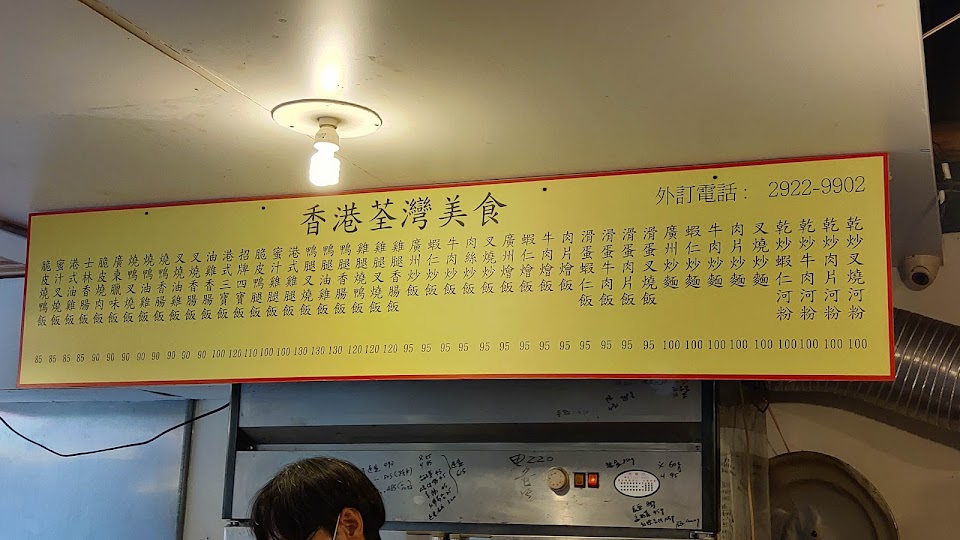 香港荃灣美食
外訂電話： 2922-9902
脆皮燒鴨飯 85
蜜汁叉燒飯 85
港式油雞飯 85
士林香腸飯 85
脆皮燒肉飯 90
廣東臘味飯 90
燒鴨叉燒飯 90
燒鴨油雞飯 90
燒鴨香腸飯 90
叉燒油雞飯 90
叉燒香腸飯 90
油雞香腸飯 90
港式三寶飯 100
招牌四寶飯 120
脆皮鴨腿飯 110
蜜汁雞腿飯 100
港式雞腿飯 100
鴨腿叉燒飯 130
鴨腿油雞飯 130
鴨腿香腸飯 130
雞腿燒鴨飯 120
雞腿叉燒飯 120
雞腿香腸飯 120
廣州炒飯 95
蝦仁炒飯 95
牛肉炒飯 95
肉絲炒飯 95
叉燒炒飯 95
廣州燴飯 95
蝦仁燴飯 95
牛肉燴飯 95
肉片燴飯 95
滑蛋蝦仁飯 95
滑蛋牛肉飯 95
滑蛋肉片飯 95
滑蛋叉燒飯 95
廣州炒麵 100
蝦仁炒麵 100
牛肉炒麵 100
肉片炒麵 100
叉燒炒麵 100
乾炒蝦仁河粉 100
乾炒牛肉河粉 100
乾炒肉片河粉 100
乾炒叉燒河粉 100